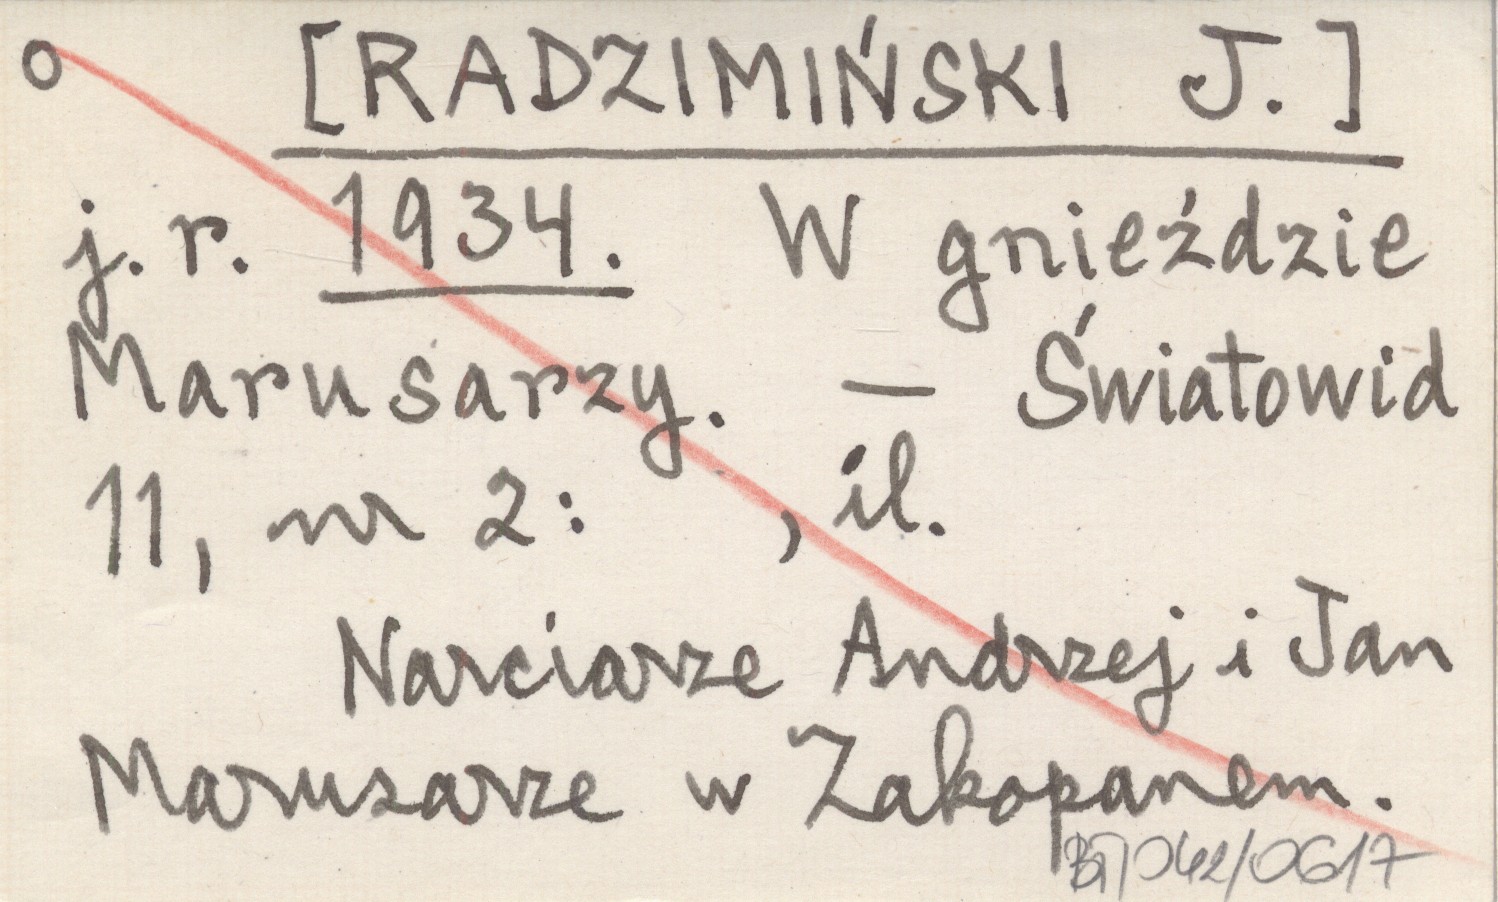 o [RADZIMIŃSKI J.]
j. r. 1934. W gnieździe
Marusarzy. — Światowid
11, nr 2: , il.
Narciarze Andrzej i Jan
Marusarze w Zakopanem.
042/0617